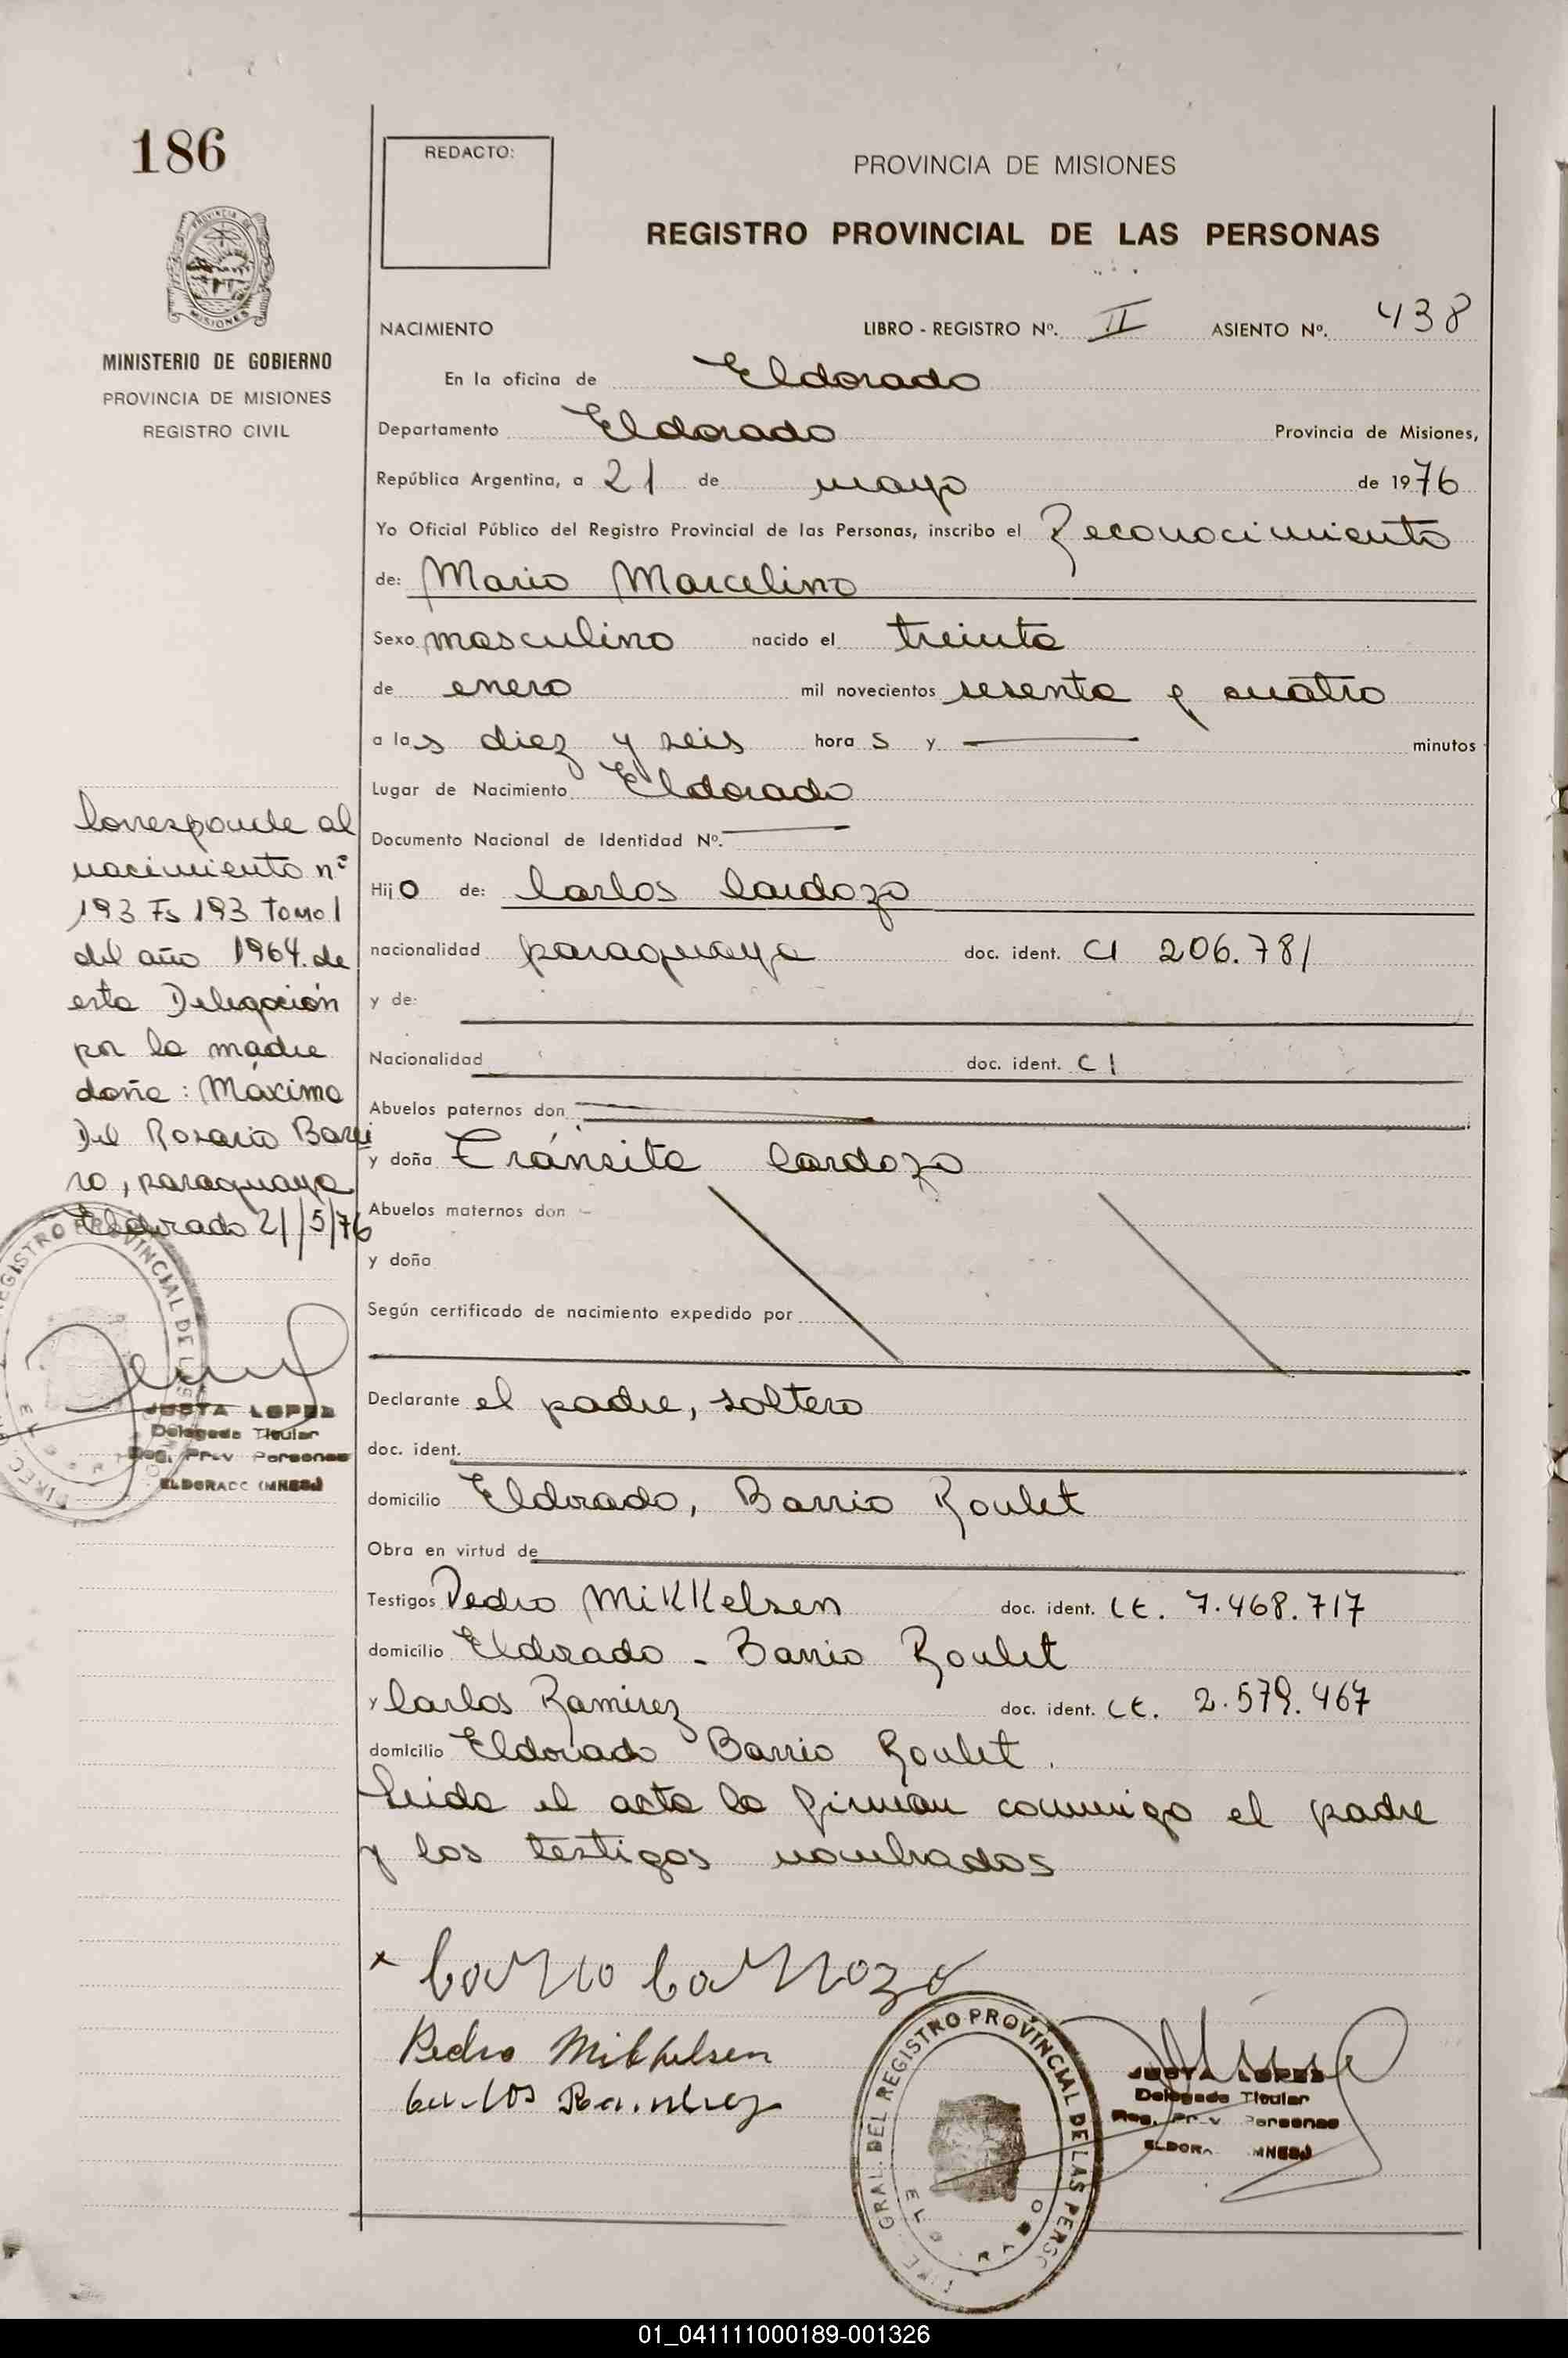 186
PROVINCIA DE MISIONES
MINISTERIO DE GOBIERNO
PROVINCIA DE MISIONES
REGISTRO CIVIL
REDACTO:
PROVINCIA DE MISIONES
REGISTRO PROVINCIAL DE LAS PERSONAS
NACIMIENTO LIBRO - REGISTRO Nº. II ASIENTO Nº. 438
En la oficina de Eldorado
Departamento Eldorado Provincia de Misiones,
República Argentina, a 21 de mayo de 1976
Yo Oficial Público del Registro Provincial de las Personas, inscribo el Reconocimiento
de: Mario Marcelino
Sexo masculino nacido el treinta
de enero mil novecientos sesenta y cuatro
a las diez y seis horas y minutos
Lugar de Nacimiento Eldorado
Documento Nacional de Identidad Nº.
Hijo de: Carlos Cardozo
nacionalidad paraguaya doc. ident. CI 206.781
y de:
Nacionalidad doc. ident. CI
Abuelos paternos don
y doña Tránsita Cardozo
Abuelos maternos don
y doña
Según certificado de nacimiento expedido por
Declarante el padre, soltero
doc. ident.
domicilio Eldorado, Barrio Roulet
Obra en virtud de
Testigos Pedro Mikkelsen doc. ident. LE. 7.468.717
domicilio Eldorado - Barrio Roulet
y Carlos Ramirez doc. ident. LE. 2.579.467
domicilio Eldorado Barrio Roulet.
Leida el acta la firman conmigo el padre
y los testigos nombrados
Corresponde al
nacimiento nº
193 Fs 193 Tomo I
del año 1964. de
esta Delegación
por la madre
doña: Máxima
Del Rosario Barrei
ro, paraguaya
Eldorado 21/5/76
REGISTRO PROVINCIAL DE
JUSTA LOPEZ
Delegada Titular
Reg. Prov Personas
ELDORADO (MNES)
x
Pedro Mikkelsen
Carlos Ramirez
GRAL. DEL REGISTRO PROVINCIAL DE LAS PERSO
JUSTA LOPEZ
Delegada Titular
Reg. Prov Personas
ELDOR MNES)
01_041111000189-001326